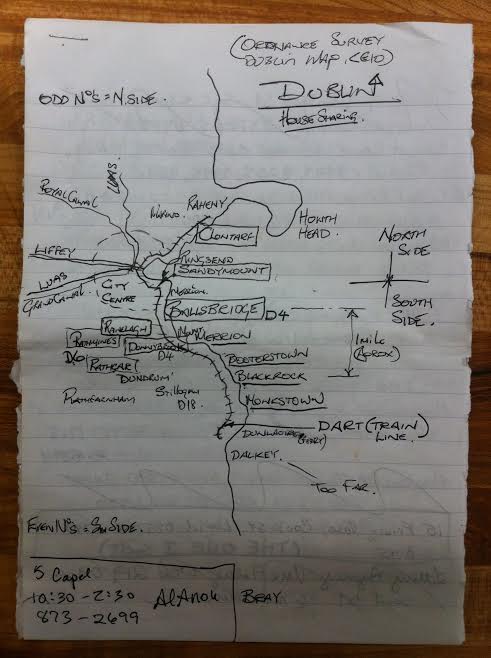 (ORDNANCE SURVEY
DUBLIN MAP, €E10)
DUBLIN
HOUSE SHARING.
ODD Nos = N. SIDE.
ROYAL CANAL
LUAS
MARINO.
RAHENY
CLONTARF
HOWTH
HEAD.
LIFFEY
LUAS
GRAND CANAL
CITY
CENTRE
RINGSEND
SANDYMOUNT
NORTH
SIDE
SOUTH
SIDE.
MERRION.
BALLSBRIDGE D4
RANELAGH
RATHMINES
D6
DONNYBROOK
D4
MERRION
RATHGAR
DUNDRUM
BOOTERSTOWN
BLACKROCK
1 MILE
(APROX)
RATHFARNHAM
Stillorgan
D18.
MONKSTOWN
DUNLAOGHAIRE (FERRY)
DART (TRAIN)
LINE.
DALKEY.
TOO FAR.
EVEN Nos = Sth SIDE.
5 Capel
10:30 - 2:30
873 - 2699
BRAY